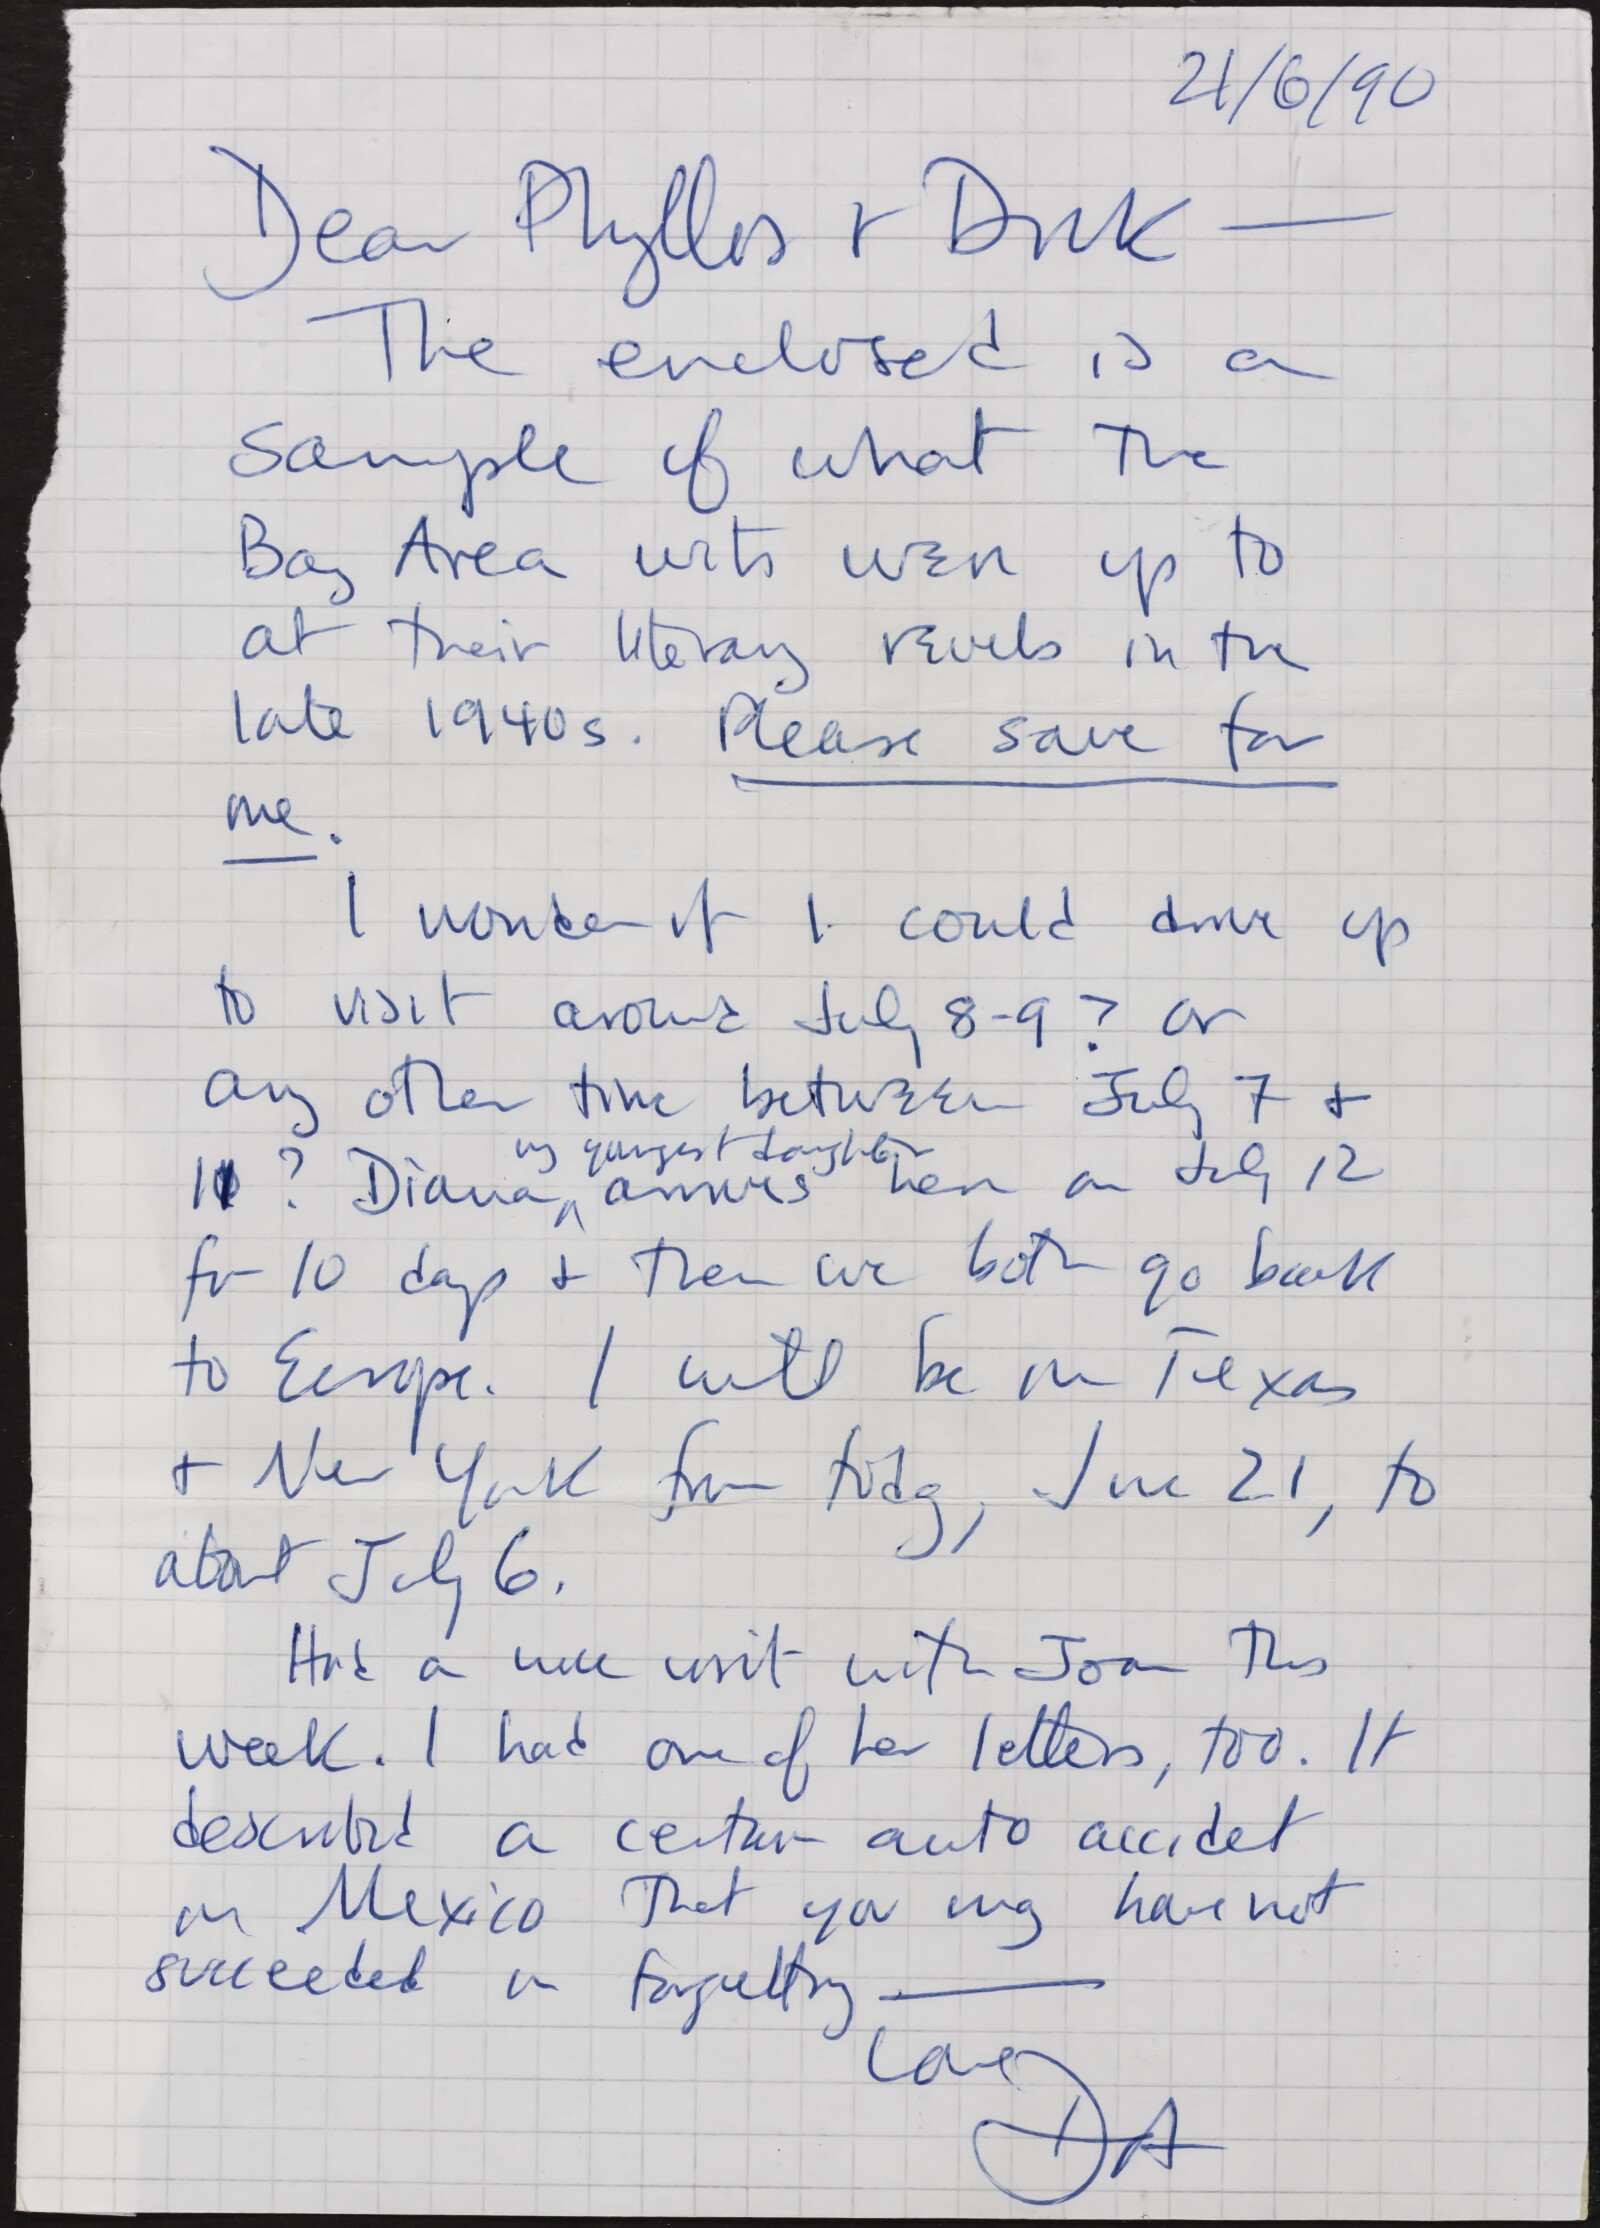 21/6/90
Dear Phyllis + Dick —
The enclosed is a
sample of what the
Bay Area wits were up to
at their literary revels in the
late 1940s. Please save for
me.
I wonder if I could drive up
to visit around July 8-9? or
any other time between July 7 +
11? Diana, my youngest daughter arrives here on July 12
for 10 days + then we both go back
to Europe. I will be in Texas
+ New York from today, June 21, to
about July 6.
Had a nice visit with Joan this
week. I had one of her letters, too. It
described a certain auto accidet
in Mexico that you may have not
succeeded in forgetting —
Love
DA